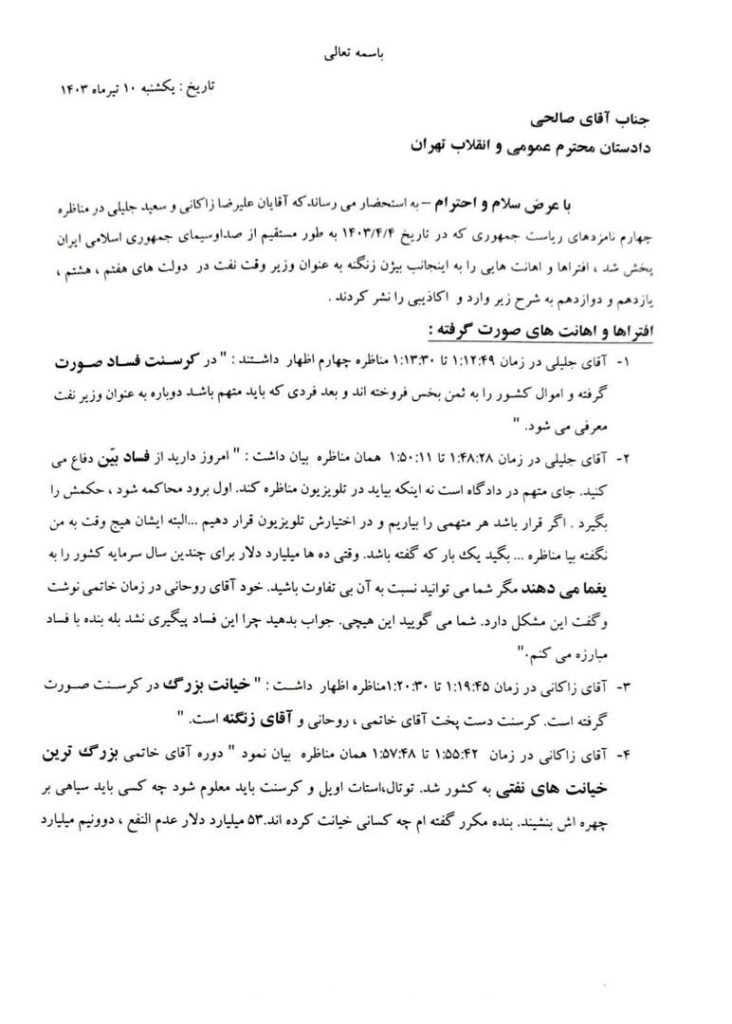 باسمه تعالی
تاریخ : یکشنبه ۱۰ تیرماه ۱۴۰۳
جناب آقای صالحی
دادستان محترم عمومی و انقلاب تهران
با عرض سلام و احترام – به استحضار می رساندکه آقایان علیرضا زاکانی و سعید جلیلی در مناظره
چهارم نامزدهای ریاست جمهوری که در تاریخ ۱۴۰۳/۴/۴ به طور مستقیم از صداوسیمای جمهوری اسلامی ایران
پخش شد ، افتراها و اهانت هایی را به اینجانب بیژن زنگنه به عنوان وزیر وقت نفت در دولت های هفتم ، هشتم ،
یازدهم و دوازدهم به شرح زیر وارد و اکاذیبی را نشر کردند .
افتراها و اهانت های صورت گرفته :
۱- آقای جلیلی در زمان ۱:۱۲:۴۹ تا ۱:۱۳:۳۰ مناظره چهارم اظهار داشتند : " در کرسنت فساد صورت
گرفته و اموال کشور را به ثمن بخس فروخته اند و بعد فردی که باید متهم باشد دوباره به عنوان وزیر نفت
معرفی می شود. "
۲- آقای جلیلی در زمان ۱:۴۸:۲۸ تا ۱:۵۰:۱۱ همان مناظره بیان داشت : " امروز دارید از فساد بیّن دفاع می
کنید. جای متهم در دادگاه است نه اینکه بیاید در تلویزیون مناظره کند. اول برود محاکمه شود ، حکمش را
بگیرد . اگر قرار باشد هر متهمی را بیاریم و در اختیارش تلویزیون قرار دهیم ...البته ایشان هیچ وقت به من
نگفته بیا مناظره ... بگید یک بار که گفته باشد. وقتی ده ها میلیارد دلار برای چندین سال سرمایه کشور را به
یغما می دهند مگر شما می توانید نسبت به آن بی تفاوت باشید. خود آقای روحانی در زمان خاتمی نوشت
وگفت این مشکل دارد. شما می گویید این هیچی. جواب بدهید چرا این فساد پیگیری نشد بله بنده با فساد
مبارزه می کنم."
۳- آقای زاکانی در زمان ۱:۱۹:۴۵ تا ۱:۲۰:۳۰مناظره اظهار داشت : " خیانت بزرگ در کرسنت صورت
گرفته است. کرسنت دست پخت آقای خاتمی ، روحانی و آقای زنگنه است. "
۴- آقای زاکانی در زمان ۱:۵۵:۴۲ تا ۱:۵۷:۴۸ همان مناظره بیان نمود " دوره آقای خاتمی بزرگ ترین
خیانت های نفتی به کشور شد. توتال،استات اویل و کرسنت باید معلوم شود چه کسی باید سیاهی بر
چهره اش بنشیند. بنده مکرر گفته ام چه کسانی خیانت کرده اند.۵۳ میلیارد دلار عدم النفع ، دوونیم میلیارد